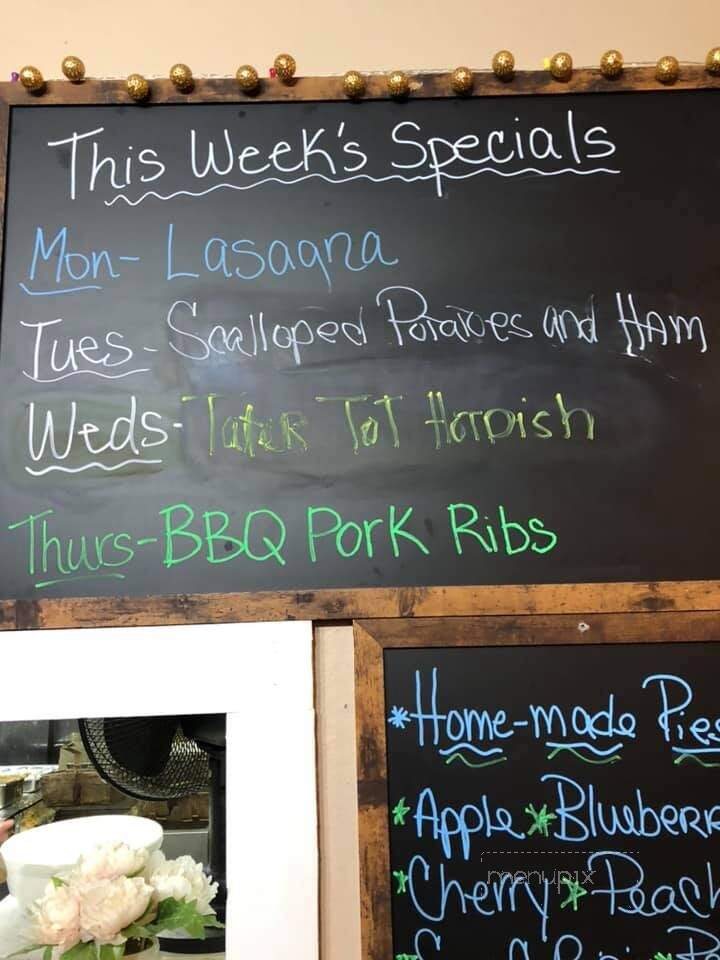 This Week's Specials
Mon- Lasagna
Tues- Scalloped Potatoes and Ham
Weds- Tater Tot Hotdish
Thurs- BBQ Pork Ribs
*Home-made Pies
*Apple *Blueberr
*Cherry *Peach
menupix